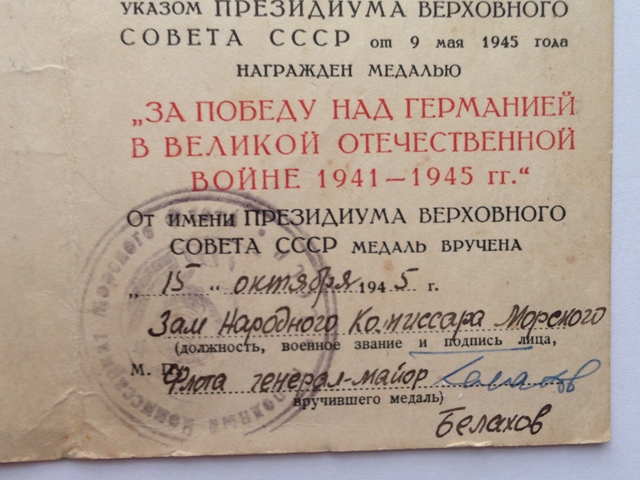 УКАЗОМ ПРЕЗИДИУМА ВЕРХОВНОГО
СОВЕТА СССР от 9 мая 1945 года
НАГРАЖДЕН МЕДАЛЬЮ
„ЗА ПОБЕДУ НАД ГЕРМАНИЕЙ
В ВЕЛИКОЙ ОТЕЧЕСТВЕННОЙ
ВОЙНЕ 1941—1945 гг.“
От имени ПРЕЗИДИУМА ВЕРХОВНОГО
СОВЕТА СССР МЕДАЛЬ ВРУЧЕНА
„15“ октября 1945 г.
Зам Народного Комиссара Морского
(должность, военное звание и подпись лица,
М. П.
Флота генерал-майор
вручившего медаль)
Белахов
Народный Комиссариат Морского